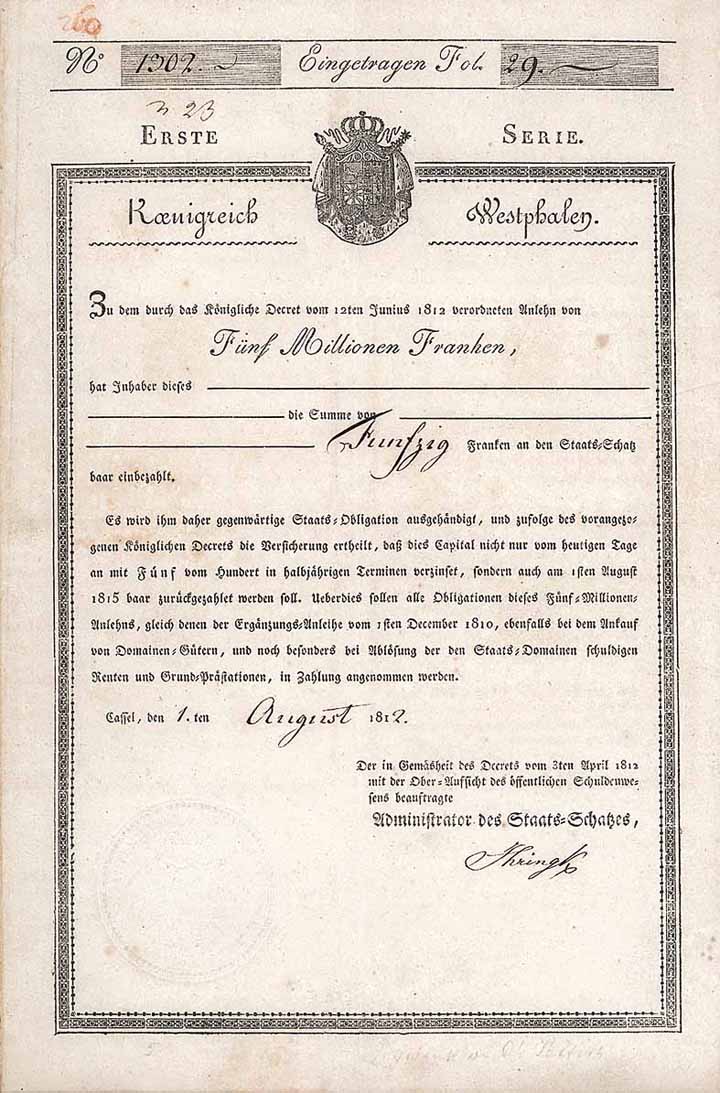 260
No 1302. Eingetragen Fol. 29.
23
ERSTE SERIE.
Kœnigreich Westphalen.
Zu dem durch das Königliche Decret vom 12ten Junius 1812 verordneten Anlehn von
Fünf Millionen Franken,
hat Inhaber dieses
die Summe von
Funfzig Franken an den Staats-Schatz
baar einbezahlt.
Es wird ihm daher gegenwärtige Staats-Obligation ausgehändigt, und zufolge des vorangezo-
genen Königlichen Decrets die Versicherung ertheilt, daß dies Capital nicht nur vom heutigen Tage
an mit Fünf vom Hundert in halbjährigen Terminen verzinset, sondern auch am 1sten August
1815 baar zurückgezahlet werden soll. Ueberdies sollen alle Obligationen dieses Fünf-Millionen-
Anlehns, gleich denen der Ergänzungs-Anleihe vom 1sten December 1810, ebenfalls bei dem Ankauf
von Domainen-Gütern, und noch besonders bei Ablösung der den Staats-Domainen schuldigen
Renten und Grund-Prästationen, in Zahlung angenommen werden.
Cassel, den 1. ten August 1812.
Der in Gemäsheit des Decrets vom 3ten April 1812
mit der Ober-Aufsicht des öffentlichen Schuldenwe-
sens beauftragte
Administrator des Staats-Schatzes,